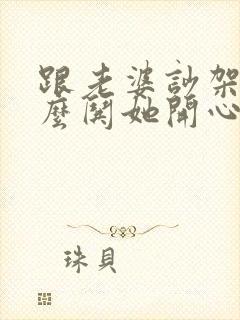 跟老婆訠架
麼鬨她開心
珠貝